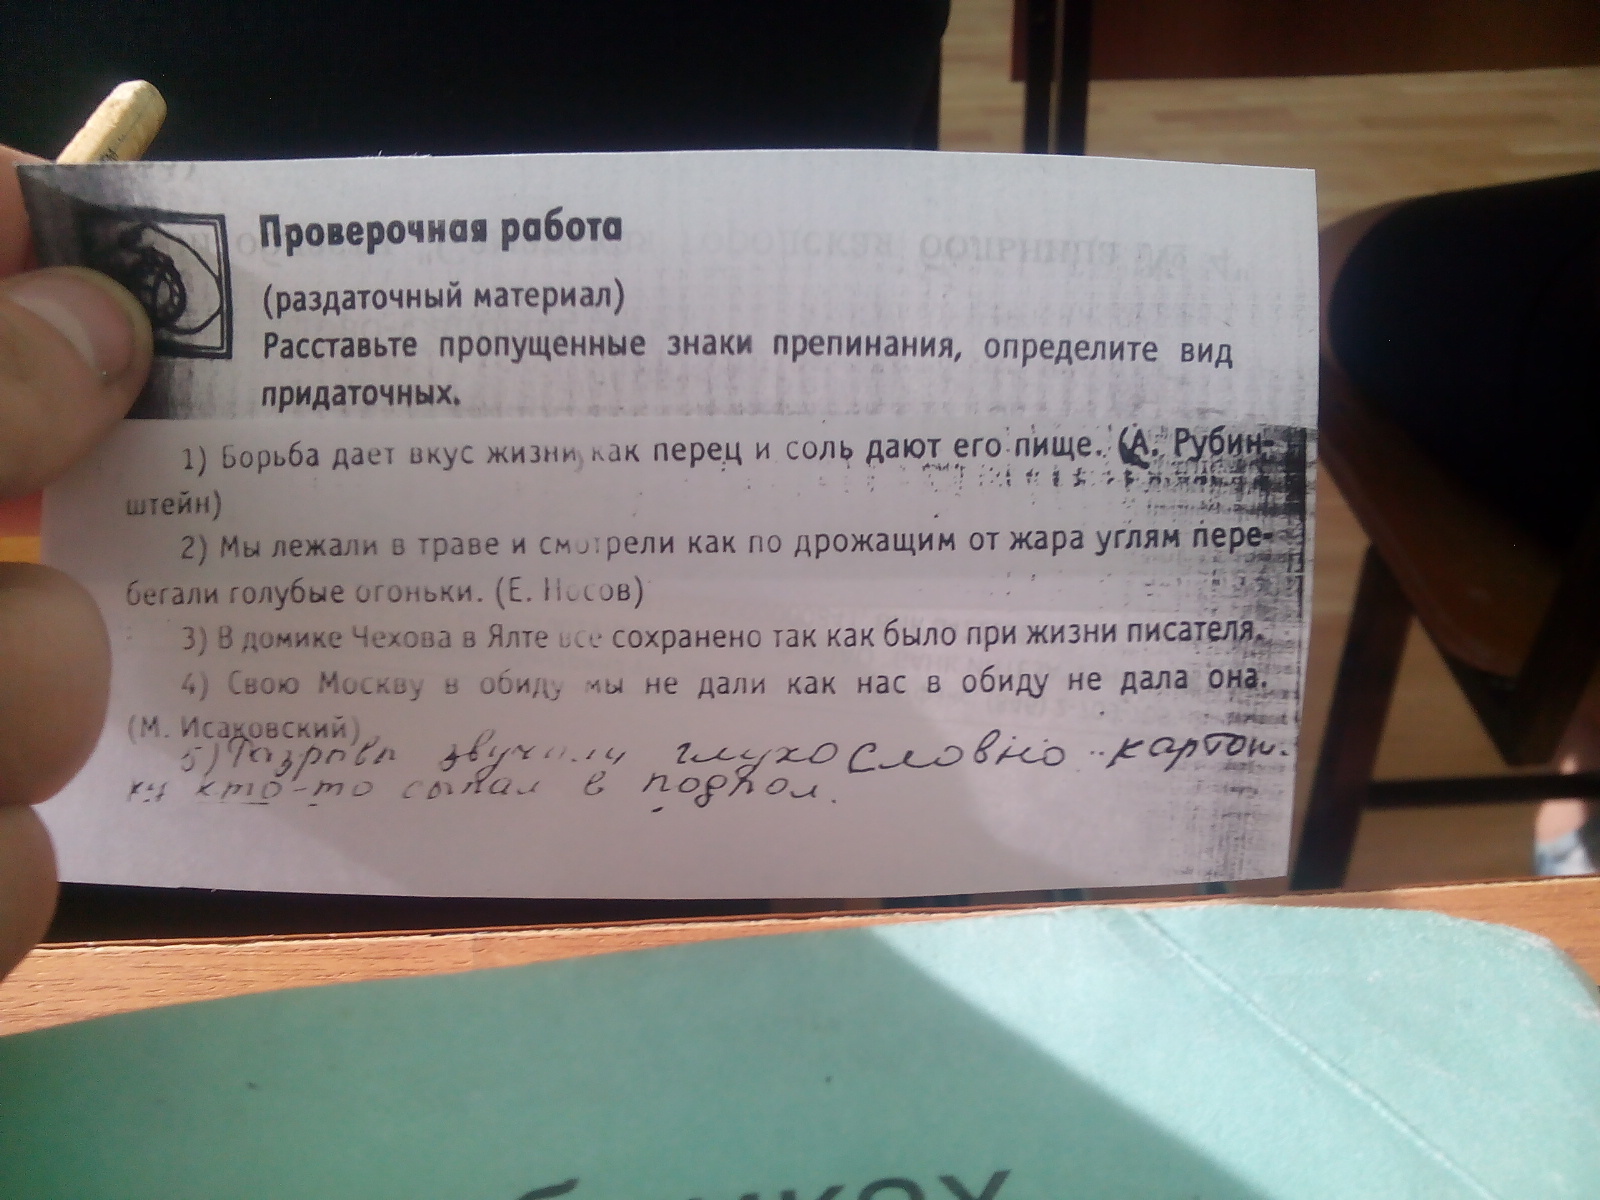 Проверочная работа
(раздаточный материал)
Расставьте пропущенные знаки препинания, определите вид
придаточных.
1) Борьба дает вкус жизни, как перец и соль дают его пище. (А. Рубин-
штейн)
2) Мы лежали в траве и смотрели как по дрожащим от жара углям пере-
бегали голубые огоньки. (Е. Носов)
3) В домике Чехова в Ялте все сохранено так как было при жизни писателя.
4) Свою Москву в обиду мы не дали как нас в обиду не дала она.
(М. Исаковский)
5) Разрывы звучали глухо словно картош-
ку кто-то сыпал в подпол.